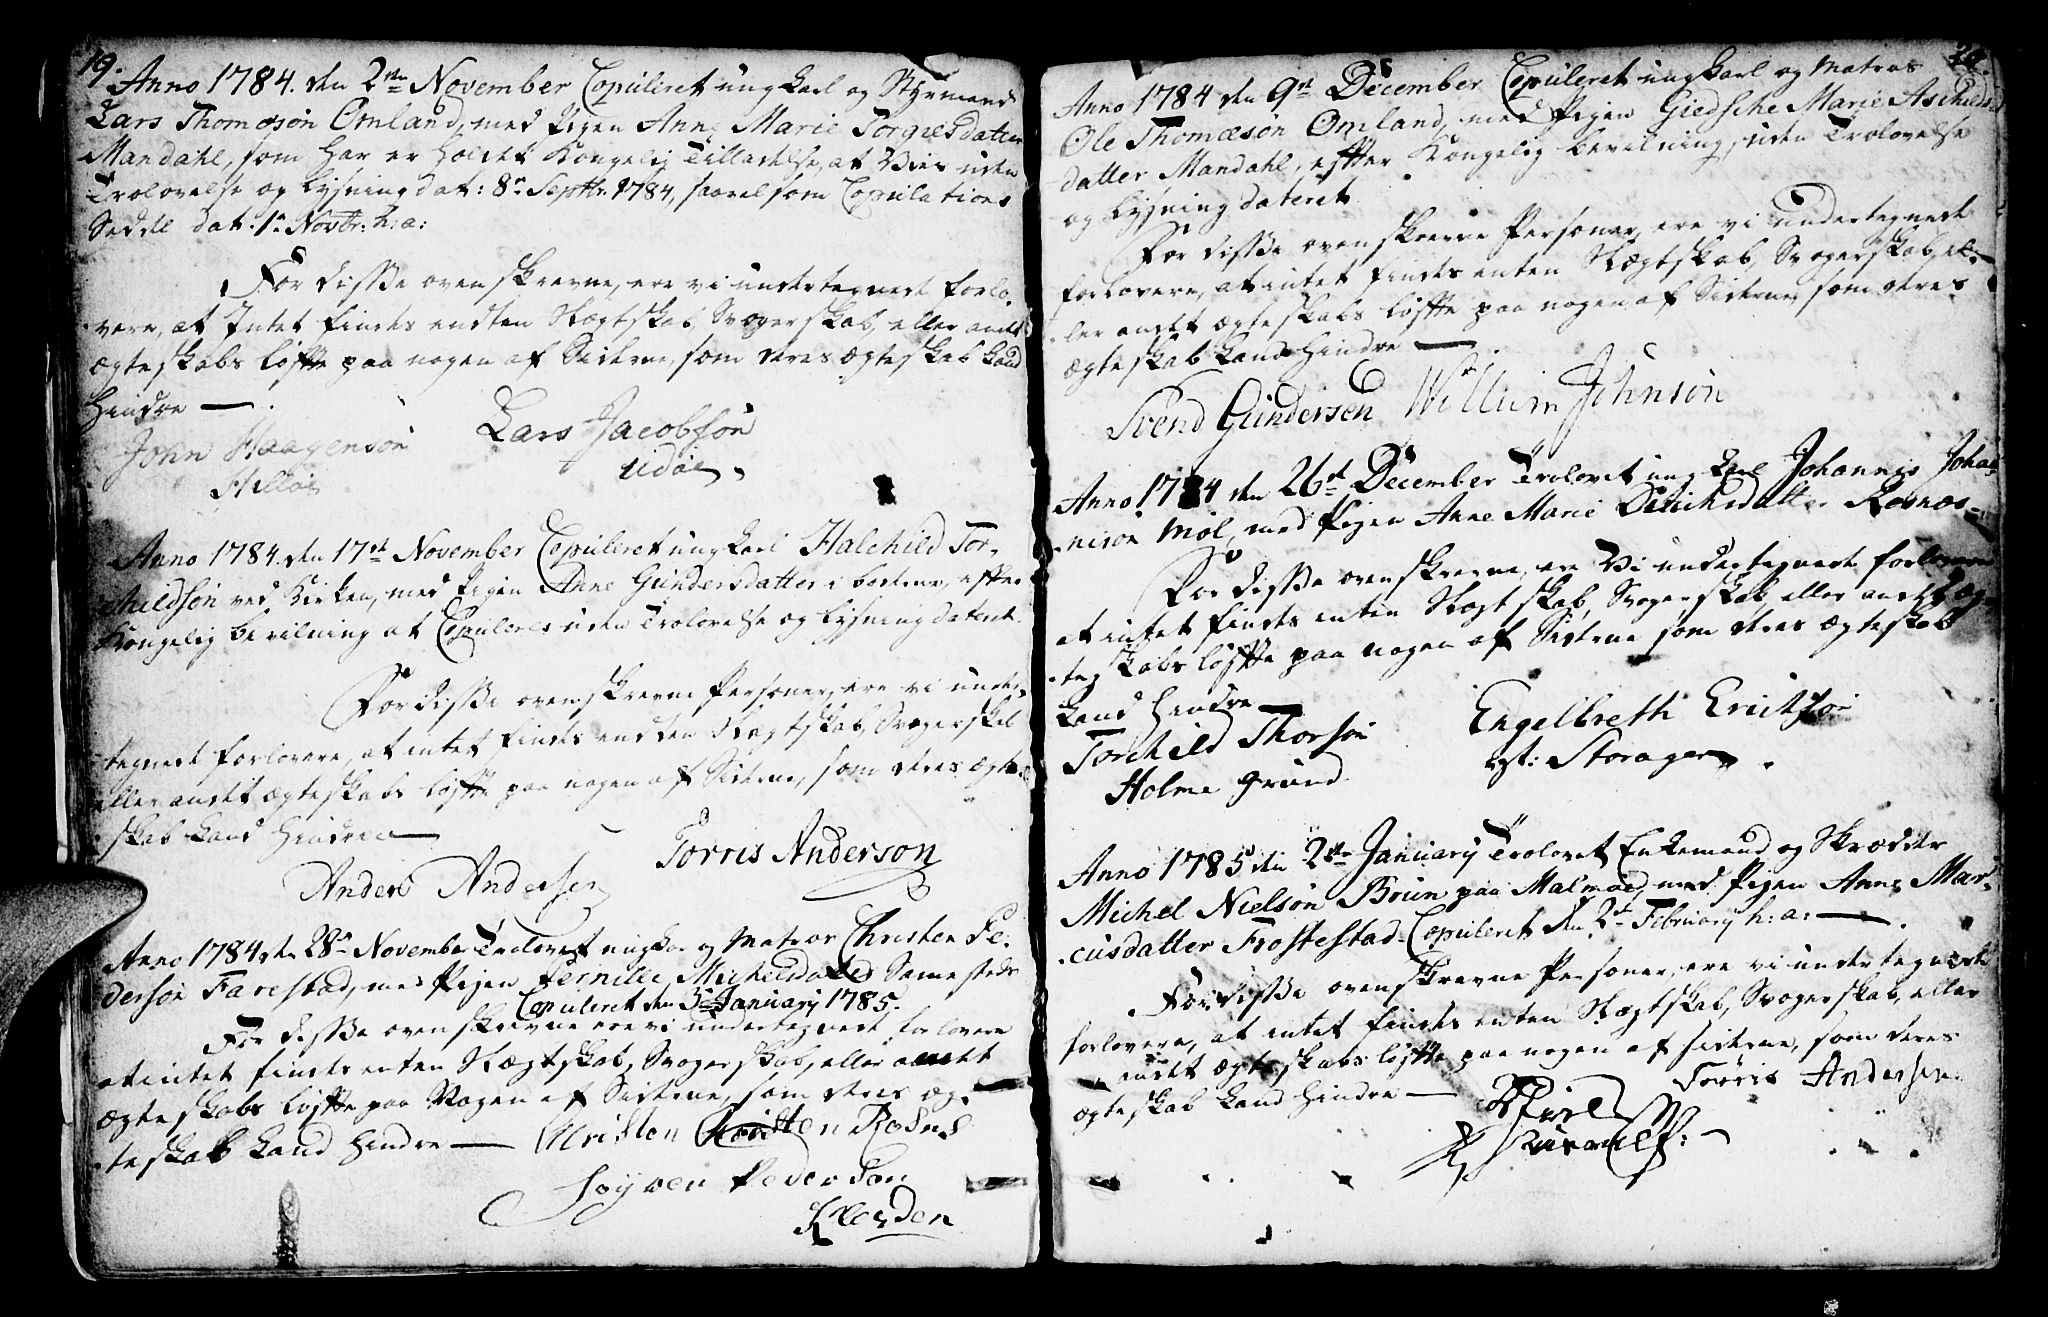 19.
Anno 1784. den 2den November Copuleret ung Karl og Styrmand
Lars Thomæsøn Omland, med Pigen Anne Marie Torgiesdatter
Mandahl, som har erholdet Kongelig Tilladelse, at Vies uden
Trolovelse og Lysning dat: 8de Septbr. 1784, saavelsom Copulations
Seddel dat. 1te Novbr: h: a:
For disse ovenskrevne, ere vi undertegnede forlo-
vere, at Intet findes endten Slægtskab, Svogerskab, eller andet
ægteskabs løfte paa nogen af Siderne, som deres ægteskab kand
Hindre —
John Haagensøn
Hilløe
Lars Jacobsøn
Udøe
Anno 1784. den 17de November Copuleret ung Karl Halchild Tor-
childsøn ved Kirken, med Pigen Anne Gundersdatter i , efter
Kongelig bevilning at Copuleres uden Trolovelse og Lysning dateret
For disse ovenskrevne Personer, ere vi under-
tegnede forlovere, at intet findes endten Slægtskab, Svogerskab
eller andet ægteskabs løfte paa nogen af Siderne, som deres ægte-
skab kand Hindre —
Anders Andersen
Torris Anderson
Anno 1784 den 28de November Trolovet ungkar og Matros Christen Pe-
dersøn Farestad, med Pigen Pernille Michelsdatter Sammesteds
Copuleret den 3de January 1785.
For disse ovenskrevne ere vi undertegnede forlovere
at intet findes enten Slægtskab, Svogerskab, eller andet
ægteskabs løfte paa Nogen af Siderne, som deres æg-
teskab kand Hindre — Christen Rosnes
Soyven Pedersøn

20.
Anno 1784 den 9de December Copuleret ung Karl og Matros
Ole Thomæsøn Omland, med Pigen Giedsche Marie Aschilds
datter Mandahl, efter Kongelig bevilning, uden Trolovelse
og Lysning dateret
For disse ovenskrevne Personer, ere vi undertegnede
forlovere, at intet findes enten Slægtskab, Svogerskab, el-
ler andet ægteskabs løfte paa nogen af Siderne, som deres
ægteskab kand Hindre —
Svend Gundersen Willum Johnson
Anno 1784 den 26de December Trolovet ung Karl Johannis Johan-
nisøn Møl, med Pigen Anne Marie Rosnæs
For disse ovenskrevne, ere Vi undertegnede forlovere
at intet findes enten Slægtskab, Svogerskab eller andet Æg-
teskabs løfte paa nogen af Siderne som deres Ægteskab
kand Hindre
Torchild Thorsøn
Holme Grund
Engelbreth Erichsøn
Storager
Anno 1785 den 2den January Trolovet Enkemand og Skrædder
Michel Nielsøn Bruun paa Malmøe, med Pigen Anne Mar-
cusdatter Frøstestad. Copuleret den 2de February h: a: —
For disse ovenskrevne Personer, ere vi undertegnede
forlovere, at intet findes enten Slægtskab, Svogerskab, eller
andet ægteskabs løfte paa nogen af siderne, som deres
ægteskab kand Hindre —
Torris Andersen